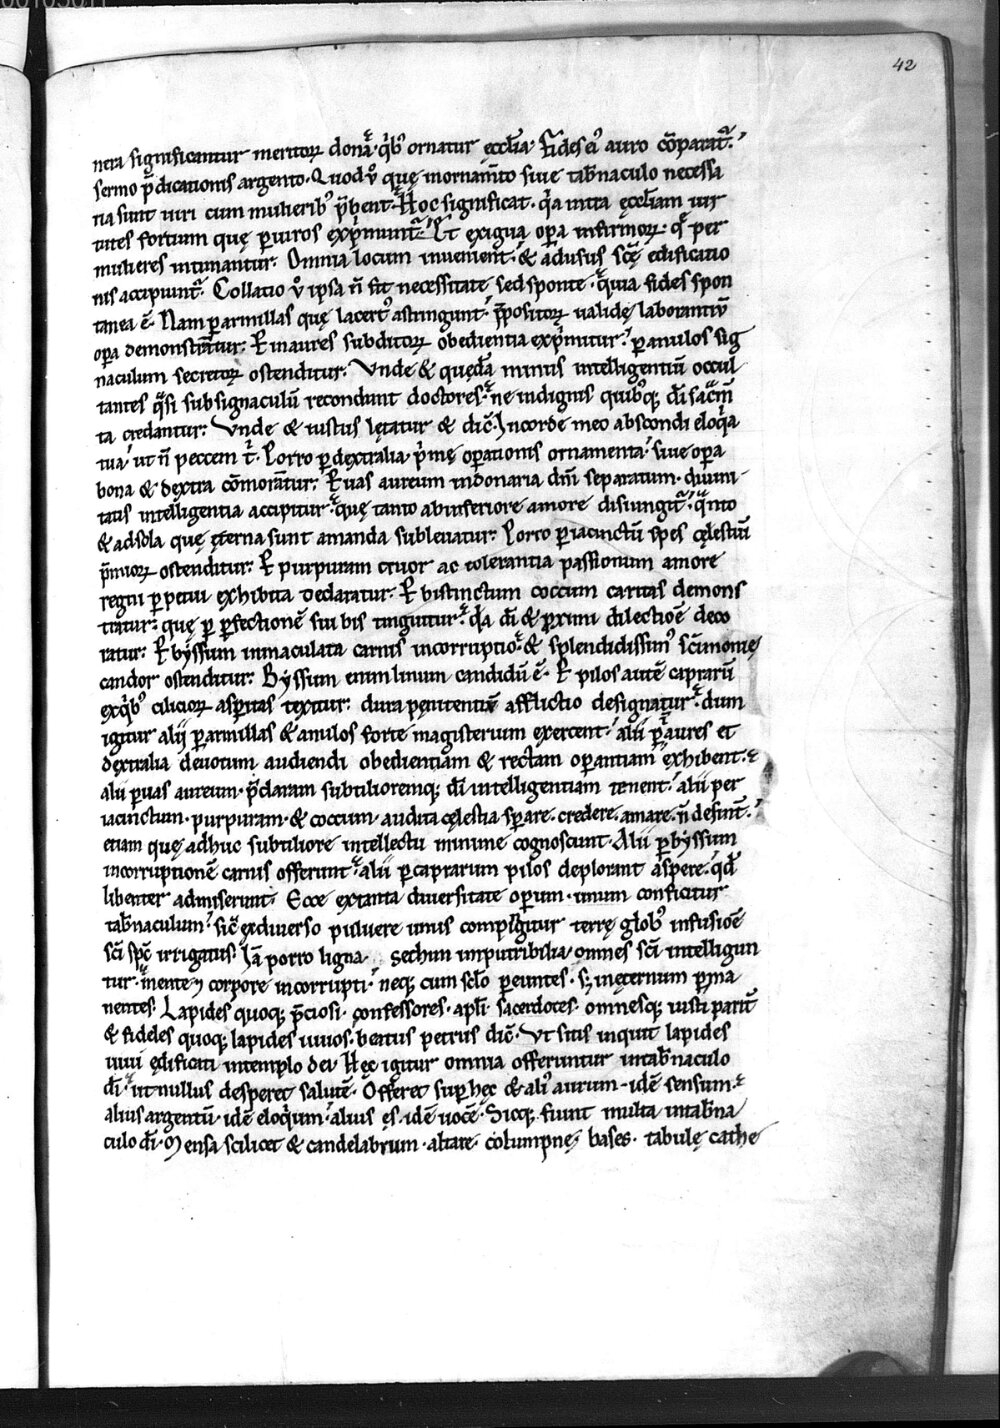 42
ntia significantur meritoꝝ dona. q̇bꝰ ornatur ęcclīa. Fides ei auro cōparat᷑.
sermo p̄dicationis argento. Quod ů quę inornam̄to siue tab̄naculo necessa
ria sunt uiri cum mulieribꝰ p̄bent. Hoc significat. q̇a iuxta ęccl̄iam uir
tutes fortium quę ꝑuiros exp̄munt᷑. Et exigua oꝑa infirmoꝝ. q̨ per
mulieres intimantur. Omnia locum inuenient. & adusus scę̄ edificatio
nis accipiunt᷑. Collatio ů ipsa n̄ fit necessitate sed sponte. quia fides spon
tanea ē. Nam ꝑarmillas quę lacertꝰ astringunt. p̄positoꝝ ualidę laborantiū
oꝑa demonstrātur. Et inaures subditoꝝ obedientia exp̄mitur. ꝑanulos sig
naculum secretoꝝ ostenditur. Vnde & quędā minus intelligentiū occul
tantes q̄si subsignaculū recondunt doctores. ne indignis quibꝰcꝫ dī sac̄m
ta credantur. Vnde & iustus lętatur & dic̄. Incorde meo abscondi eloq̇a
tua. ut n̄ peccem t̄. Porro ꝑdextralia p̄mę oꝑationis ornamenta. siue oꝑa
bona & dextra cōmorāntur. Et uas aureum indonaria dn̄i separatum. diuini
tatis intelligentia accipitur. quę tanto abinferiore amore disiungit᷑. q̄nto
& adsola quę ęterna sunt amanda subleuatur. Porro ꝑiacinctū spes cęlestiū
p̄mioꝝ ostenditur. Et purpuram cruor ac tolerantia passionum amore
regni ꝑpetui exhibita declaratur. Et bistinctum coccum caritas demons
tratur. quę ꝑ ꝑfectionē sui bis tinguitur. q̇a dī & proximi dilectioē deco
ratur. Et byssum inmaculata carnis incorruptio. & splendidissimꝰ sc̄imonię
candor ostenditur. Byssum enim linum candidū ē. Et pilos autē caprarū
exq̇bꝰ cilicioꝝ asꝑitas texitur. dura pęnitentiū afflictio designatur. dum
igitur alij ꝑarmillas & anulos forte magisterium exercent. alii ꝑ aures et
dextralia deuotum audiendi obedientiam & rectam operantiam exhibent.
alii ꝑuas aureum. p̄claram subtilioremqꝫ dī intelligentiam tenent. alii per
iacinctum. purpuram. & coccum. audita cęlestia sꝑare. credere. amare. n̄ desinūt.
etiam quę adhuc subtiliore intellectu minime cognoscunt. Alii ꝑbyssum
incorruptionē carnis offerunt. alii ꝑcaprarum pilos deplorant aspere. qd̄
libenter admiserunt. Ecce extanta diuersitate oꝑum. unum conficitur
tab̄naculum. sic̄ exdiuerso puluere unus compingitur terrę globꝰ infusioē
sc̄i spc̄ irrigatus. Iā porro ligna sethim imputribilia. omnes sc̄i intelligun
tur. mente ⁊ corpore incorrupti. neqꝫ cum scl̄o ꝑeuntes. sꝫ inęternum ꝑma
nentes. Lapides quoqꝫ p̄ciosi. confessores. apl̄i. sacerdotes. omnesqꝫ iusti pariṫ
& fideles quoqꝫ lapides uiuos. beatus petrus dic̄. Vt sitis inquit lapides
uiui ędificati intemplo dei. Hęc igitur omnia offeruntur intab̄naculo
dī. ut nullus desperet salutē. Offeret suꝑ hęc & aliꝰ aurum. idē sensum.
alius argentū. idē eloq̇um. alius ęs. idē uocē. Sicqꝫ fiunt multa intab̄na
culo dī. Mensa scilicet & candelabrum. altare. columpnę. bases. tabulę cathe